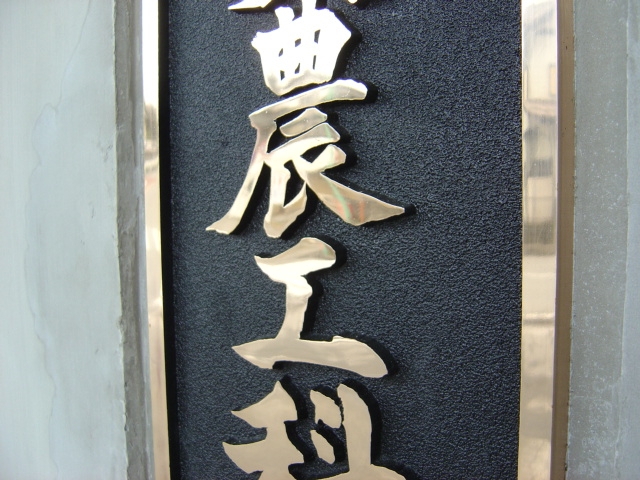 農工科